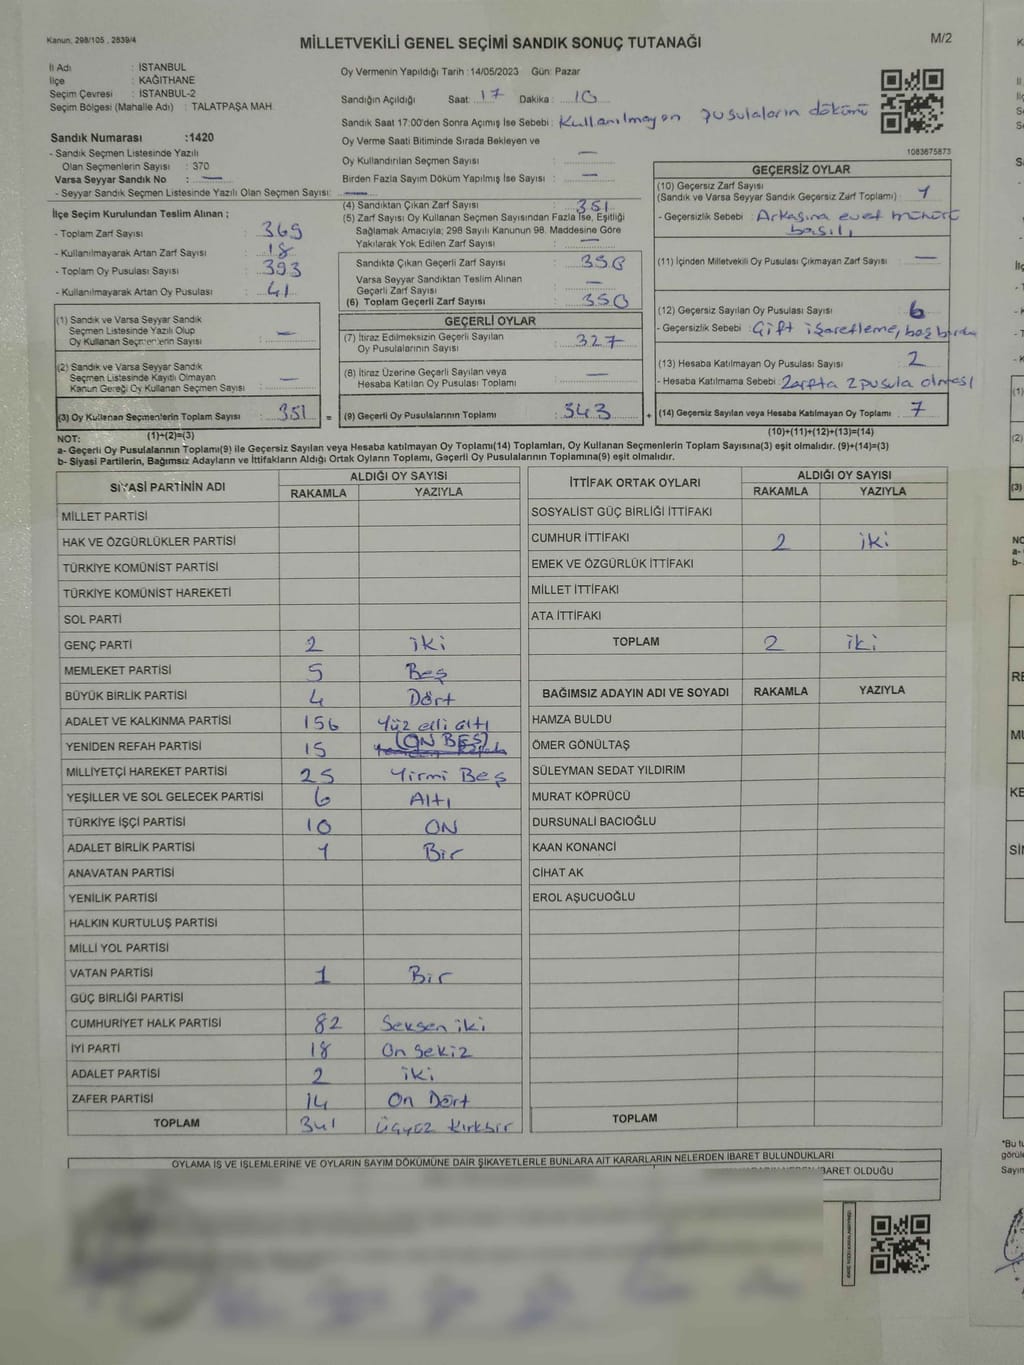 Kanun, 298/105 , 2839/4
MİLLETVEKİLİ GENEL SEÇİMİ SANDIK SONUÇ TUTANAĞI
M/2
İl Adı : İSTANBUL
İlçe : KAĞITHANE
Seçim Çevresi : İSTANBUL-2
Seçim Bölgesi (Mahalle Adı) : TALATPAŞA MAH.
Oy Vermenin Yapıldığı Tarih :14/05/2023 Gün: Pazar
Sandığın Açıldığı Saat 17 Dakika : 10
Sandık Saat 17:00'den Sonra Açımış İse Sebebi : Kullanılmayan pusulaların dökümü
Sandık Numarası :1420
- Sandık Seçmen Listesinde Yazılı
Olan Seçmenlerin Sayısı : 370
Varsa Seyyar Sandık No : —
- Seyyar Sandık Seçmen Listesinde Yazılı Olan Seçmen Sayısı: —
Oy Verme Saati Bitiminde Sırada Bekleyen ve
Oy Kullandırılan Seçmen Sayısı : —
Birden Fazla Sayım Döküm Yapılmış İse Sayısı : —
1083675873
İlçe Seçim Kurulundan Teslim Alınan ;
- Toplam Zarf Sayısı : 369
- Kullanılmayarak Artan Zarf Sayısı : 18
- Toplam Oy Pusulası Sayısı : 393
- Kullanılmayarak Artan Oy Pusulası : 41
(1) Sandık ve Varsa Seyyar Sandık
Seçmen Listesinde Yazılı Olup
Oy Kullanan Seçmenlerin Sayısı : —
(2) Sandık ve Varsa Seyyar Sandık
Seçmen Listesinde Kayıtlı Olmayan
Kanun Gereği Oy Kullanan Seçmen Sayısı : —
(3) Oy Kullanan Seçmenlerin Toplam Sayısı : 351 =
(4) Sandıktan Çıkan Zarf Sayısı : 351
(5) Zarf Sayısı Oy Kullanan Seçmen Sayısından Fazla İse, Eşitliği
Sağlamak Amacıyla; 298 Sayılı Kanunun 98. Maddesine Göre
Yakılarak Yok Edilen Zarf Sayısı : —
Sandıkta Çıkan Geçerli Zarf Sayısı : 350
Varsa Seyyar Sandıktan Teslim Alınan
Geçerli Zarf Sayısı : —
(6) Toplam Geçerli Zarf Sayısı : 350
GEÇERLİ OYLAR
(7) İtiraz Edilmeksizin Geçerli Sayılan
Oy Pusulalarının Sayısı : 327
(8) İtiraz Üzerine Geçerli Sayılan veya
Hesaba Katılan Oy Pusulası Toplamı : —
(9) Geçerli Oy Pusulalarının Toplamı : 343 +
GEÇERSİZ OYLAR
(10) Geçersiz Zarf Sayısı
(Sandık ve Varsa Seyyar Sandık Geçersiz Zarf Toplamı) : 1
- Geçersizlik Sebebi : Arkasına evet mührü
basılı
(11) İçinden Milletvekili Oy Pusulası Çıkmayan Zarf Sayısı : —
(12) Geçersiz Sayılan Oy Pusulası Sayısı : 6
- Geçersizlik Sebebi : Çift işaretleme, boş
(13) Hesaba Katılmayan Oy Pusulası Sayısı : 2
- Hesaba Katılmama Sebebi : Zarfta 2 pusula olması
(14) Geçersiz Sayılan veya Hesaba Katılmayan Oy Toplamı : 7
NOT: (1)+(2)=(3)
(10)+(11)+(12)+(13)=(14)
a- Geçerli Oy Pusulalarının Toplamı(9) ile Geçersiz Sayılan veya Hesaba katılmayan Oy Toplamı(14) Toplamları, Oy Kullanan Seçmenlerin Toplam Sayısına(3) eşit olmalıdır. (9)+(14)=(3)
b- Siyasi Partilerin, Bağımsız Adayların ve İttifakların Aldığı Ortak Oyların Toplamı, Geçerli Oy Pusulalarının Toplamına(9) eşit olmalıdır.
SİYASİ PARTİNİN ADI
ALDIĞI OY SAYISI
RAKAMLA YAZIYLA
MİLLET PARTİSİ
HAK VE ÖZGÜRLÜKLER PARTİSİ
TÜRKİYE KOMÜNİST PARTİSİ
TÜRKİYE KOMÜNİST HAREKETİ
SOL PARTİ
GENÇ PARTİ 2 iki
MEMLEKET PARTİSİ 5 Beş
BÜYÜK BİRLİK PARTİSİ 4 Dört
ADALET VE KALKINMA PARTİSİ 156 Yüz elli altı
YENİDEN REFAH PARTİSİ 15 (ON BEŞ)
MİLLİYETÇİ HAREKET PARTİSİ 25 Yirmi Beş
YEŞİLLER VE SOL GELECEK PARTİSİ 6 Altı
TÜRKİYE İŞÇİ PARTİSİ 10 ON
ADALET BİRLİK PARTİSİ 1 Bir
ANAVATAN PARTİSİ
YENİLİK PARTİSİ
HALKIN KURTULUŞ PARTİSİ
MİLLİ YOL PARTİSİ
VATAN PARTİSİ 1 Bir
GÜÇ BİRLİĞİ PARTİSİ
CUMHURİYET HALK PARTİSİ 82 Seksen iki
İYİ PARTİ 18 On Sekiz
ADALET PARTİSİ 2 iki
ZAFER PARTİSİ 14 On Dört
TOPLAM 341 Üçyüz Kırkbir
İTTİFAK ORTAK OYLARI
ALDIĞI OY SAYISI
RAKAMLA YAZIYLA
SOSYALİST GÜÇ BİRLİĞİ İTTİFAKI
CUMHUR İTTİFAKI 2 iki
EMEK VE ÖZGÜRLÜK İTTİFAKI
MİLLET İTTİFAKI
ATA İTTİFAKI
TOPLAM 2 iki
BAĞIMSIZ ADAYIN ADI VE SOYADI RAKAMLA YAZIYLA
HAMZA BULDU
ÖMER GÖNÜLTAŞ
SÜLEYMAN SEDAT YILDIRIM
MURAT KÖPRÜCÜ
DURSUNALİ BACIOĞLU
KAAN KONANCİ
CİHAT AK
EROL AŞUCUOĞLU
TOPLAM
OYLAMA İŞ VE İŞLEMLERİNE VE OYLARIN SAYIM DÖKÜMÜNE DAİR ŞİKAYETLERLE BUNLARA AİT KARARLARIN NELERDEN İBARET BULUNDUKLARI
İBARET OLDUĞU